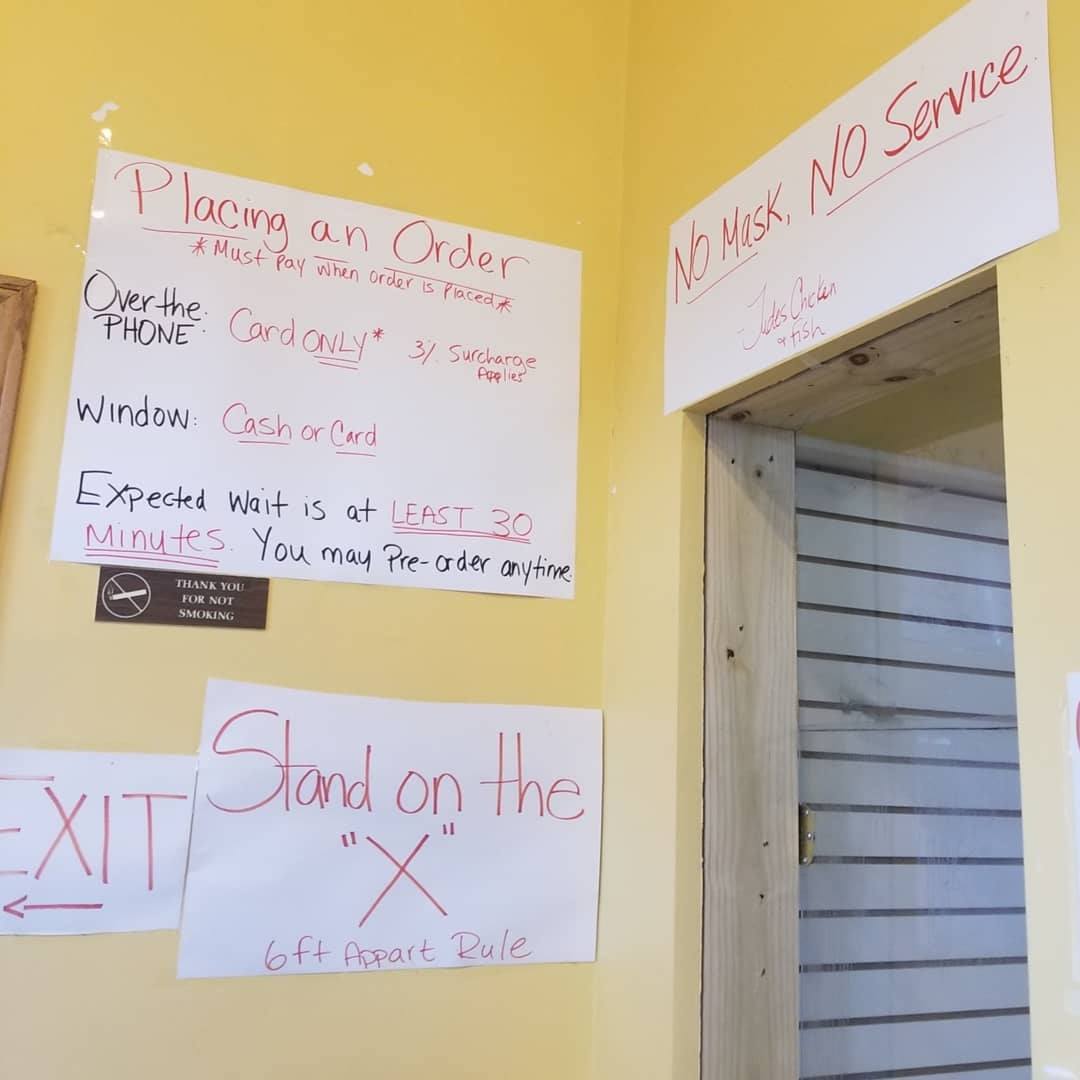 Placing an Order
*Must Pay when order is Placed*
Over the
PHONE: Card ONLY* 3% Surcharge
Applies
Window: Cash or Card
Expected Wait is at LEAST 30
Minutes. You may Pre-order anytime.
THANK YOU
FOR NOT
SMOKING
No Mask, NO Service
- Judes Chicken
& fish
EXIT
←
Stand on the
"X"
6ft Appart Rule